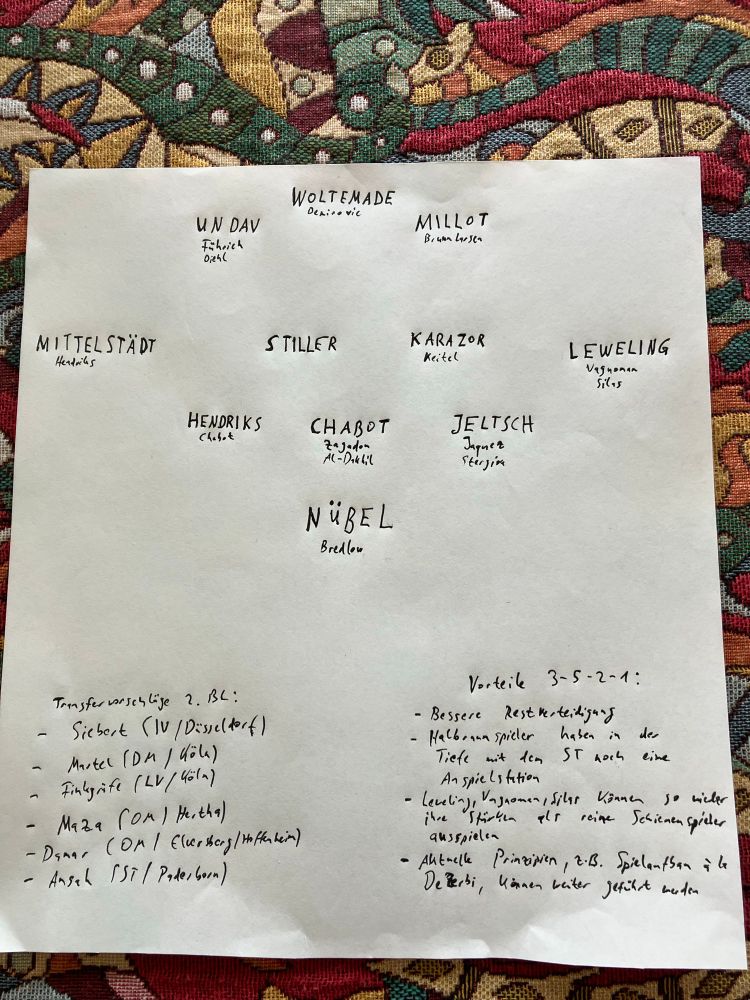 WOLTEMADE
Demirovic
UNDAV
Führich
Diehl
MILLOT
Bruun Larsen
MITTELSTÄDT
Hendriks
STILLER
KARAZOR
Keitel
LEWELING
Vagnoman
Silas
HENDRIKS
Chabot
CHABOT
Zagadou
Al-Dakhil
JELTSCH
Jaquez
Stergiou
NÜBEL
Bredlow
Transfervorschläge 2. BL:
- Siebert (IV/Düsseldorf)
- Martel (DM/Köln)
- Finkgräfe (LV/Köln)
- Maza (OM/Hertha)
- Damar (OM/Elversberg/Hoffenheim)
- Ansah (ST/Paderborn)
Vorteile 3-5-2-1:
- Bessere Restverteidigung
- Halbraumspieler haben in der
Tiefe mit dem ST noch eine
Anspielstation
- Leweling, Vagnoman, Silas können so wieder
ihre Stärken als reine Schienenspieler
ausspielen
- Aktuelle Prinzipien, z.B. Spielaufbau à la
De Zerbi, können weiter geführt werden